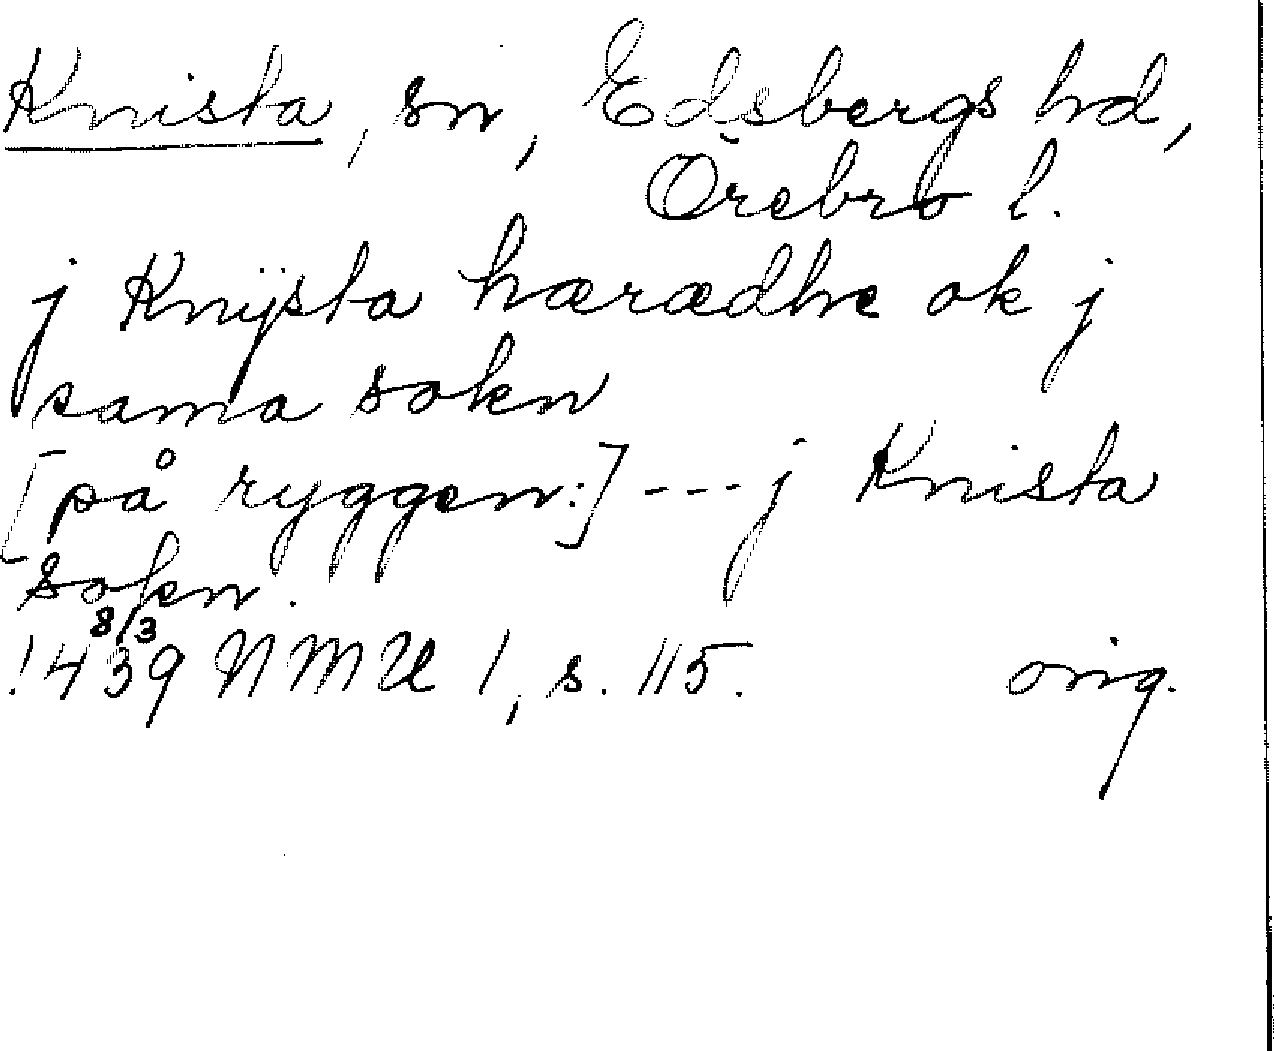 Knista, sn, Edsbergs hd,
Örebro l.
j Knÿsta hærædhe ok j
sama sokn
[på ryggen:] --- j Knista
sokn.
8/3
1439 NMU 1, s. 115. orig.